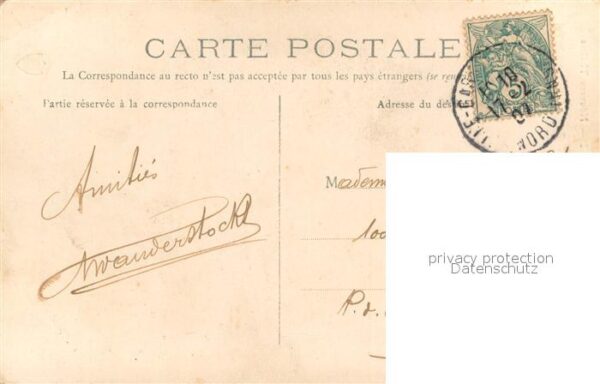 CARTE POSTALE
La Correspondance au recto n'est pas acceptée par tous les pays étrangers (se ren
Partie réservée à la correspondance
Adresse du des
5
17 12
07
NORD
Amitiés
Mademo
100
R. d.
privacy protection
Datenschutz